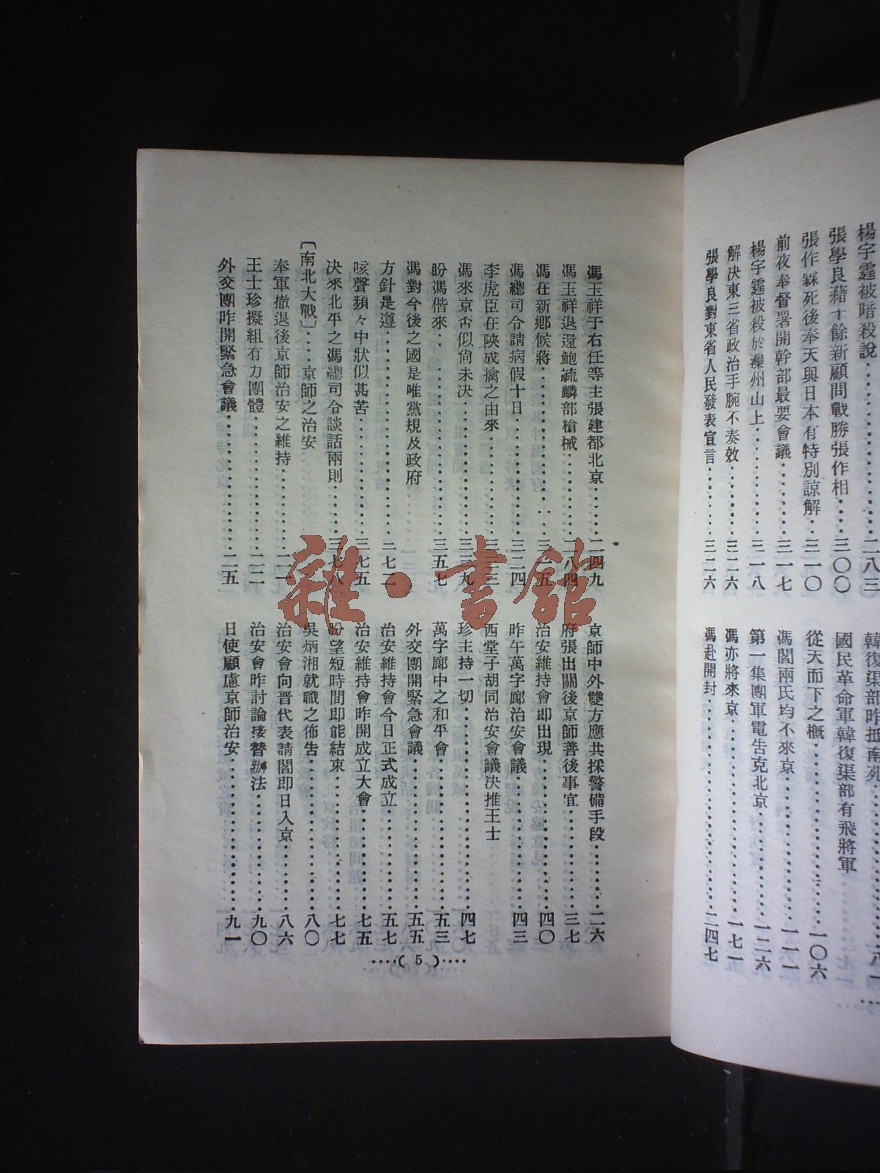 楊宇霆被暗殺說⋯⋯二八三
張學良藉十餘新顧問戰勝張作相⋯三〇〇
張作霖死後奉天與日本有特別諒解⋯三一〇
前夜奉督署開幹部最要會議⋯⋯三一七
楊宇霆被殺於灤州山上⋯⋯三一八
解決東三省政治手腕不奏效⋯⋯三二六
張學良對東省人民發表宣言⋯⋯三二六
韓復渠部昨抵南苑
國民革命軍韓復渠部有飛將軍
從天而下之概⋯⋯一〇六
馮閻兩氏均不來京⋯⋯一一一
第一集團軍電告克北京⋯⋯一二六
馮亦將來京⋯⋯一七一
馮赴開封⋯⋯二四七
馮玉祥于右任等主張建都北京⋯⋯二四九
馮玉祥退還鮑毓麟部槍械⋯⋯二八四
馮在新鄉候蔣
馮總司令請病假十日⋯⋯三二四
李虎臣在陝成擒之由來
馮來京否似尙未決
盼馮偕來⋯⋯三五七
馮對今後之國是唯黨規及政府
方針是遵⋯⋯三七二
咳聲頻々中狀似甚苦⋯⋯三七五
決來北平之馮總司令談話兩則
〔南北大戰〕⋯⋯京師之治安
奉軍撤退後京師治安之維持
王士珍擬組有力團體⋯⋯二二
外交團昨開緊急會議⋯⋯二五
京師中外雙方應共採警備手段⋯⋯二六
府張出關後京師善後事宜⋯⋯三七
治安維持會即出現⋯⋯四〇
昨午萬字廊治安會議⋯⋯四三
西堂子胡同治安會議決推王士
珍主持一切⋯⋯四七
萬字廊中之和平會⋯⋯五三
外交團開緊急會議⋯⋯五五
治安維持會今日正式成立⋯⋯五七
治安維持會昨開成立大會⋯⋯七五
盼望短時間即能結束⋯⋯七七
吳炳湘就職之佈告⋯⋯八〇
治安會向晋代表請閻即日入京⋯⋯八六
治安會昨討論接替辦法⋯⋯九〇
日使顧慮京師治安⋯⋯九一
⋯⋯( 5 )⋯⋯
雜·書館